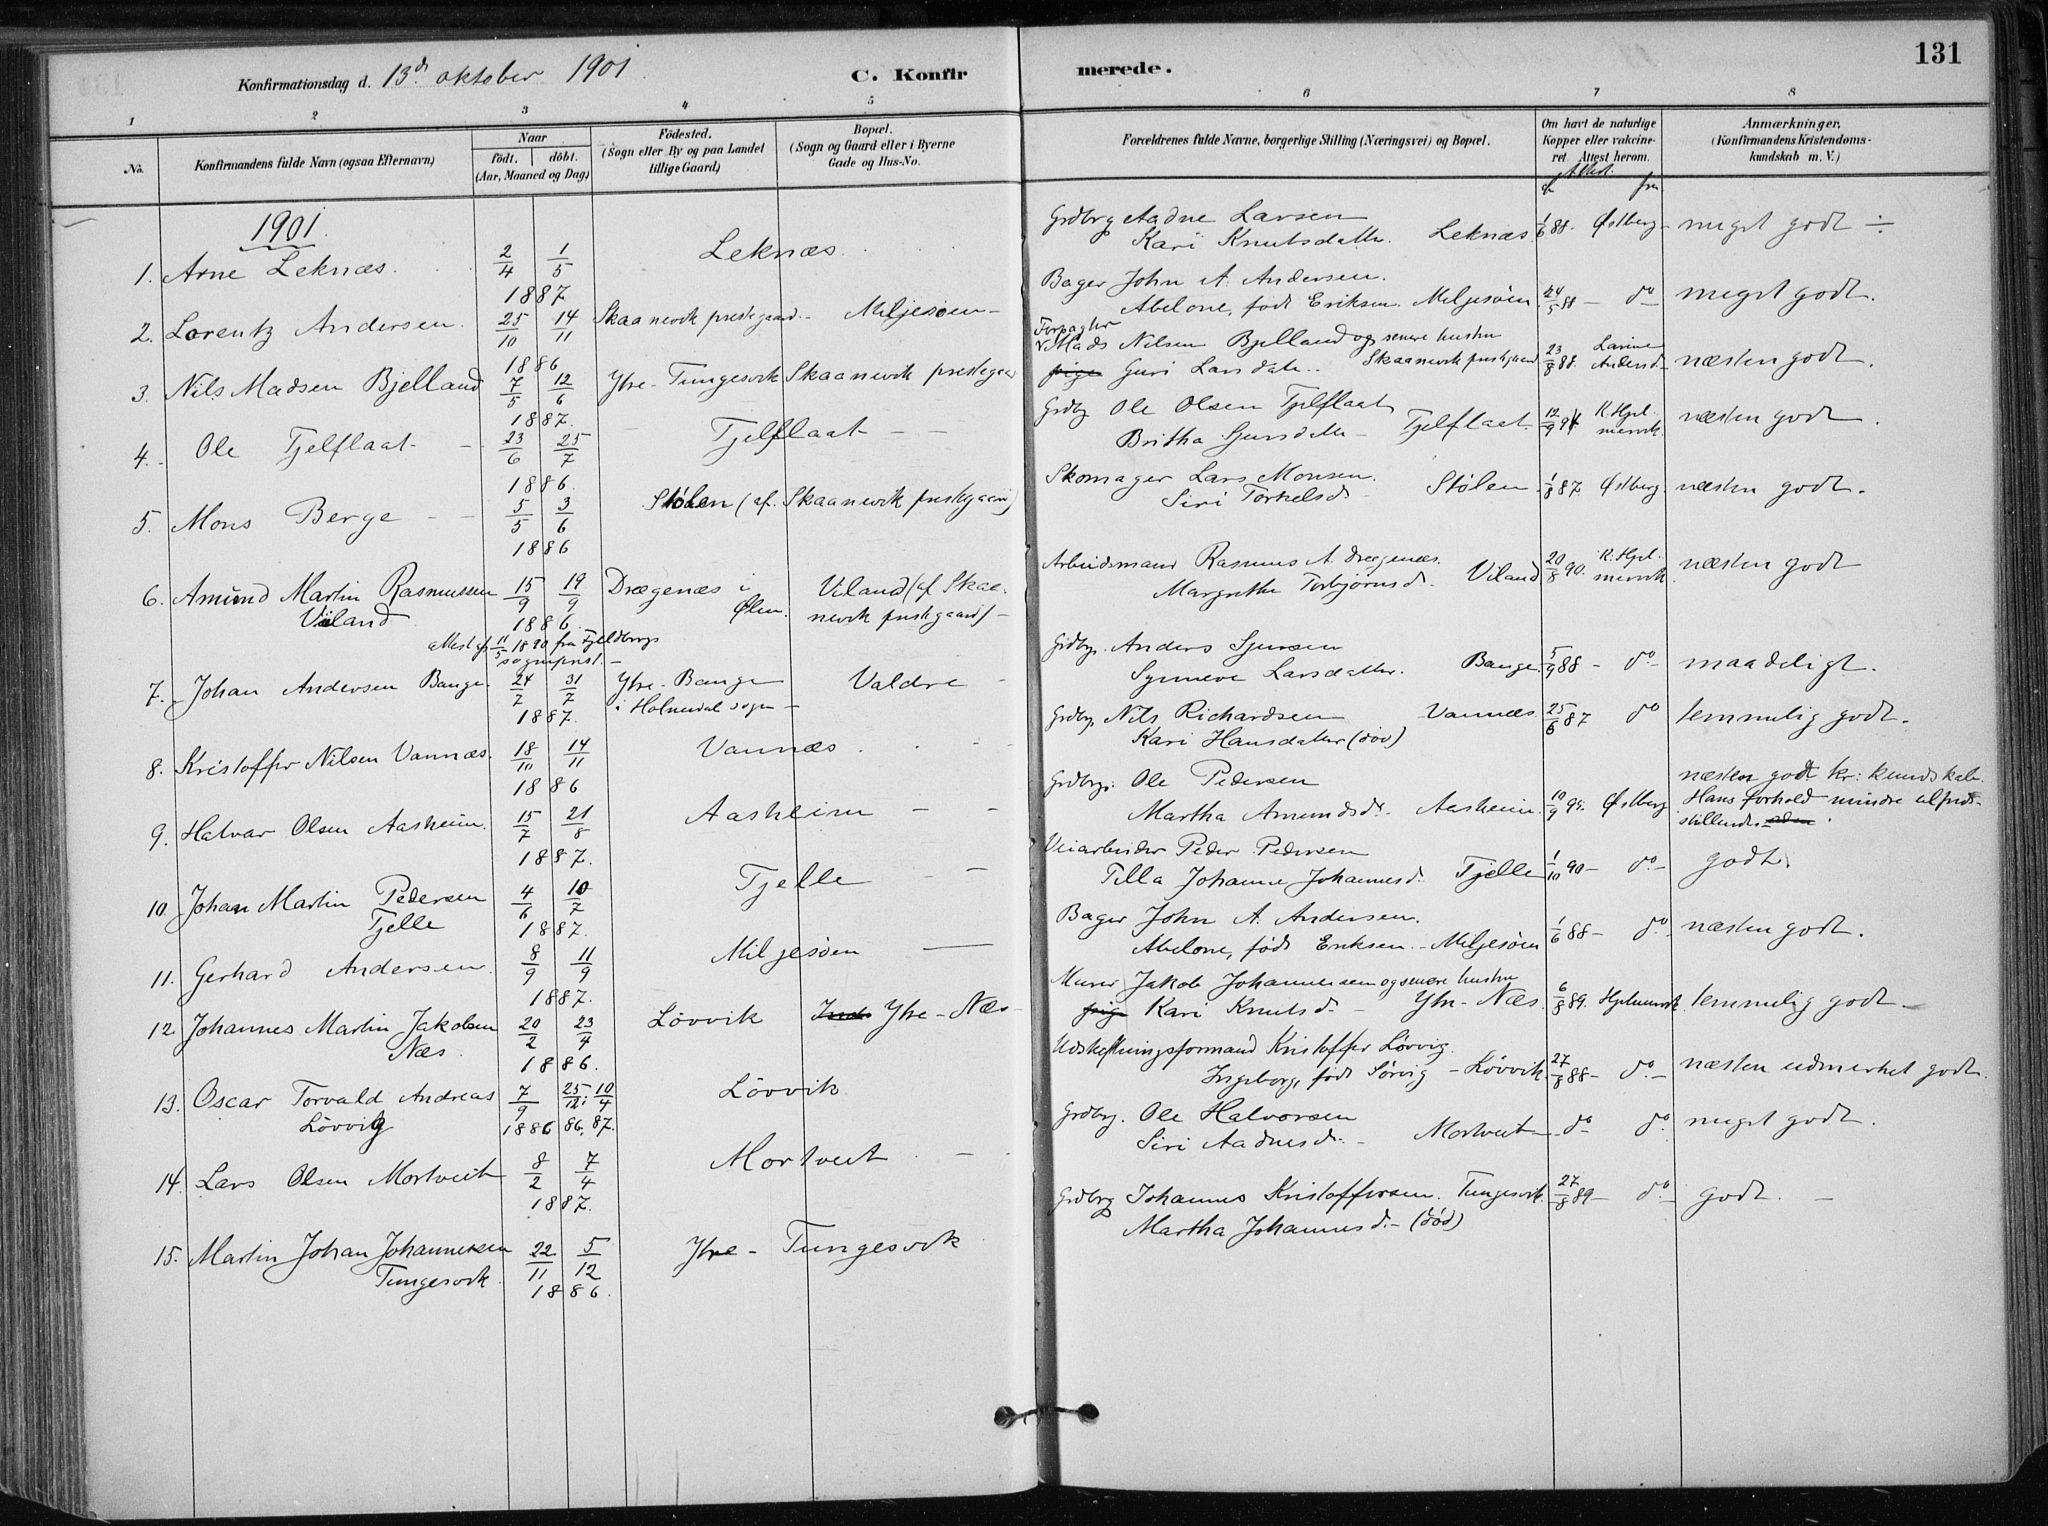 131
Konfirmationsdag d. 13de oktober 1901.
C. Konfirmerede.
1 2 3 4 5 6 7 8
No.
Konfirmandens fulde Navn (ogsaa Efternavn)
Naar
födt. döbt.
(Aar, Maaned og Dag)
Födested.
(Sogn eller By og paa Landet
tillige Gaard)
Bopæl.
(Sogn og Gaard eller i Byerne
Gade og Hus-No.
Forældrenes fulde Navne, borgerlige Stilling (Næringsvei) og Bopæl.
Om havt de naturlige
Kopper eller vakcine-
ret. Attest herom.
Anmærkninger,
(Konfirmandens Kristendoms-
kundskab m. V.)
Attest.
af fra
1901.
1. Arne Leknæs. 2/4 1/5 1887 Leknæs.
Grdbrg Aadne Larsen
Kari Knutsdatter. Leknæs. 1/6 88 - Østberg - meget godt ÷
2. Lorentz Andersen. 25/10 14/11 1886 Skaanevik prestegaard. - Miljesöen -
Bager John A. Andersen.
Abelone, født Eriksen. Miljesöen 24/5 88 - do - meget godt.
3. Nils Madsen Bjelland 7/5 12/6 1887. Ytre-Tungesvik Skaanevik prestegaard
Forpagter
Mads Nilsen Bjelland og senere hustru
pige Guri Larsdatr. Skaanevik prestegaard 23/8 88. Larine Andersd. næsten godt.
4. Ole Tjelflaat - 23/6 25/7 1886. Tjelflaat - -
Grdbrg Ole Olsen Tjelflaat
Britha Sjursdatter - Tjelflaat. 12/9 94 K. Hjelmervik næsten godt.
5. Mons Berge - - 5/5 3/6 1886 Stölen (af Skaanevik prestegaard)
Skomager Lars Monsen.
Siri Torkelsd. Stølen. 1/8 87. Østberg næsten godt.
6. Amund Martin Rasmussen
Viland 15/9 19/9 1886. Drægenæs i Ølen. Viland (af Skaanevik prestegaard) -
Arbeidsmand Rasmus A. Drægenæs.
Margrethe Torbjørnsd. Viland 20/8 90. K. Hjelmervik næsten godt
attest af 11/5 1890 fra Fjeldbergs
sogneprest. -
7. Johan Andersen Bauge. 24/7 31/7 1887. Ytre-Bauge i Holmedal sogn - Valdre -
Grdbrg. Anders Sjursen
Synneve Larsdatter. Bauge. 5/9 88 - do - maadeligt.
8. Kristoffer Nilsen Vannæs. 18/10 14/11 1886 Vannæs
Grdbrg. Nils Richardsen Vannæs.
Kari Hansdatter (död) 25/6 87 do temmelig godt.
9. Halvar Olsen Aasheim. 15/7 21/8 1887. Aasheim - -
Grdbrg. Ole Pedersen
Martha Amundsdr. Aasheim. 10/9 95. Østberg. næsten godt kr: kundskab.
Hans forhold mindre tilfreds-
stillende.
10. Johan Martin Pedersen
Tjelle 4/6 10/7 1887. Tjelle - -
Veiarbeider Peder Pedersen
Tilla Johanne Johannesd. Tjelle 1/10 90 - do - godt.
11. Gerhard Andersen. 8/9 11/9 1887. Miljesöen
Bager John A. Andersen.
Abelone, født Eriksen. - Miljesöen 1/6 88 - do - næsten godt.
12. Johannes Martin Jakobsen
Næs. 20/2 23/4 1886. Lövvik Ytre-Næs -
Murer Jakob Johannessen og senere hustru
pige Kari Knutsd. - Ytre-Næs. 6/8 89. Hjelmervik temmelig godt -
13. Oscar Torvald Andreas
Lövvig 7/9 25/12 i 10/4 1886 86. 87. Lövvik
Udskiftningsformand Kristoffer Lövvig.
Ingeborg, født Sørvig - Lövvik. 27/8 88 - do - næsten udmerket godt.
14. Lars Olsen Mortveit 8/2 7/4 1887. Mortveit
Grdbrg. Ole Halvorsen
Siri Aadnesdr. - Mortveit - do do meget godt.
15. Martin Johan Johannessen
Tungesvik. 22/11 5/12 1886. Ytre-Tungesvik
Grdbrg Johannes Kristoffersen. Tungesvik. 27/8 89 - do - godt. -
Martha Johannesd. - (død)